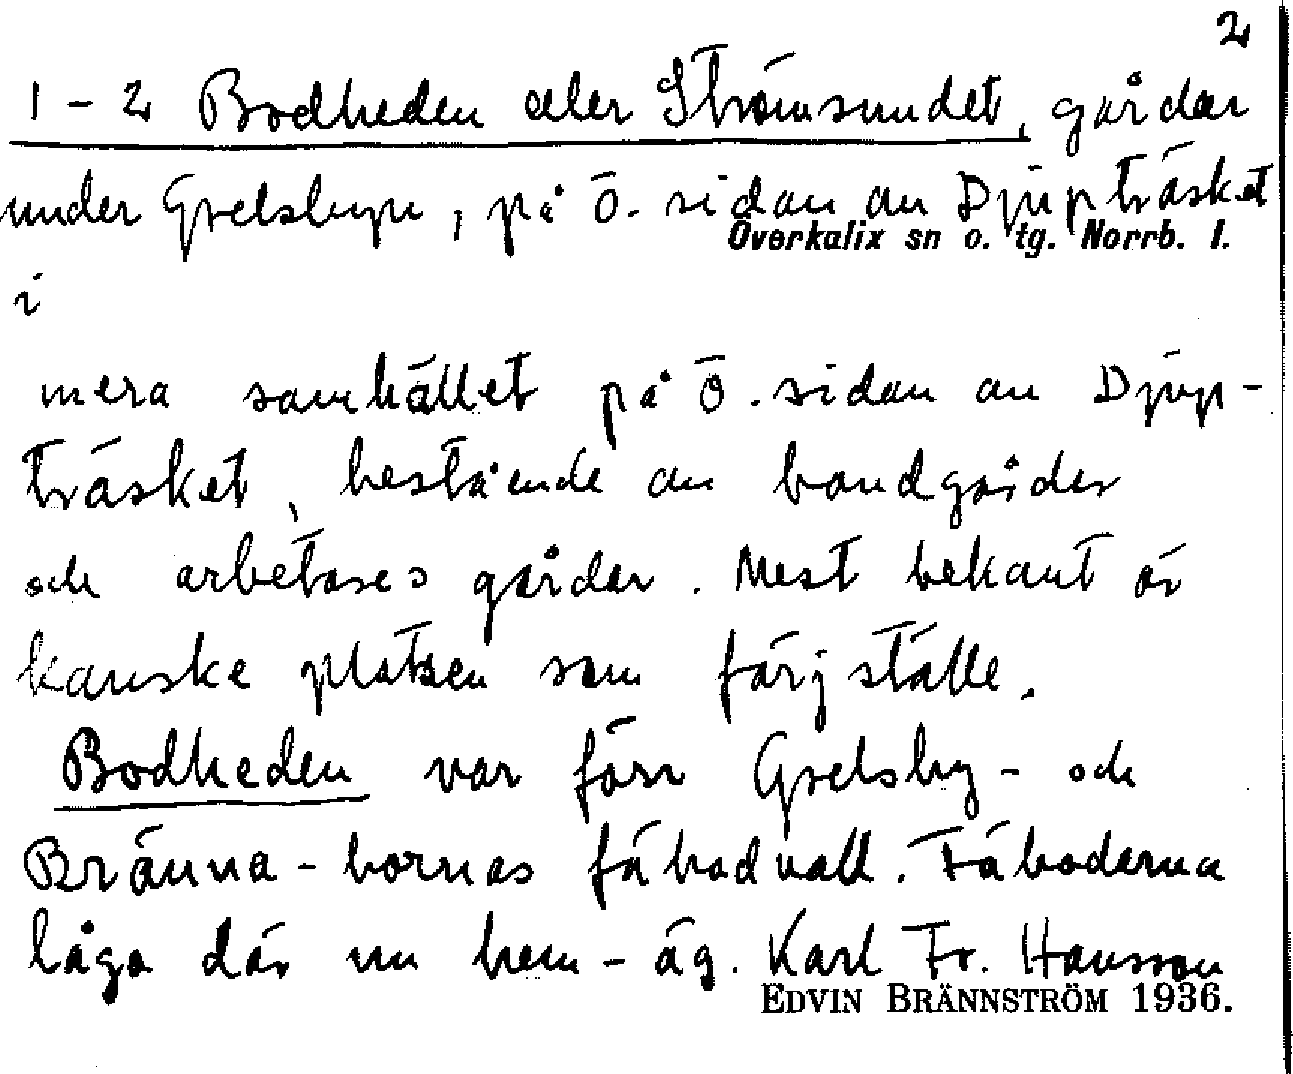 2
1 - 2 Bodheden eler Strömsundet, gårdar
under Grelsbyn, på ö. sidan av Djupträsket
Överkalix sn o. tg. Norrb. l.
i
mera samhället på ö. sidan av Djup-
träsket, bestående av bondgårdar
och arbetares gårdar. Mest bekant är
kanske platsen som färjställe.
Bodheden var förr Grelsby - och
Bränna - bornas fäbodvall. Fäboderna
låga där nu hem - äg. Karl Fr. Hansson
EDVIN BRÄNNSTRÖM 1936.